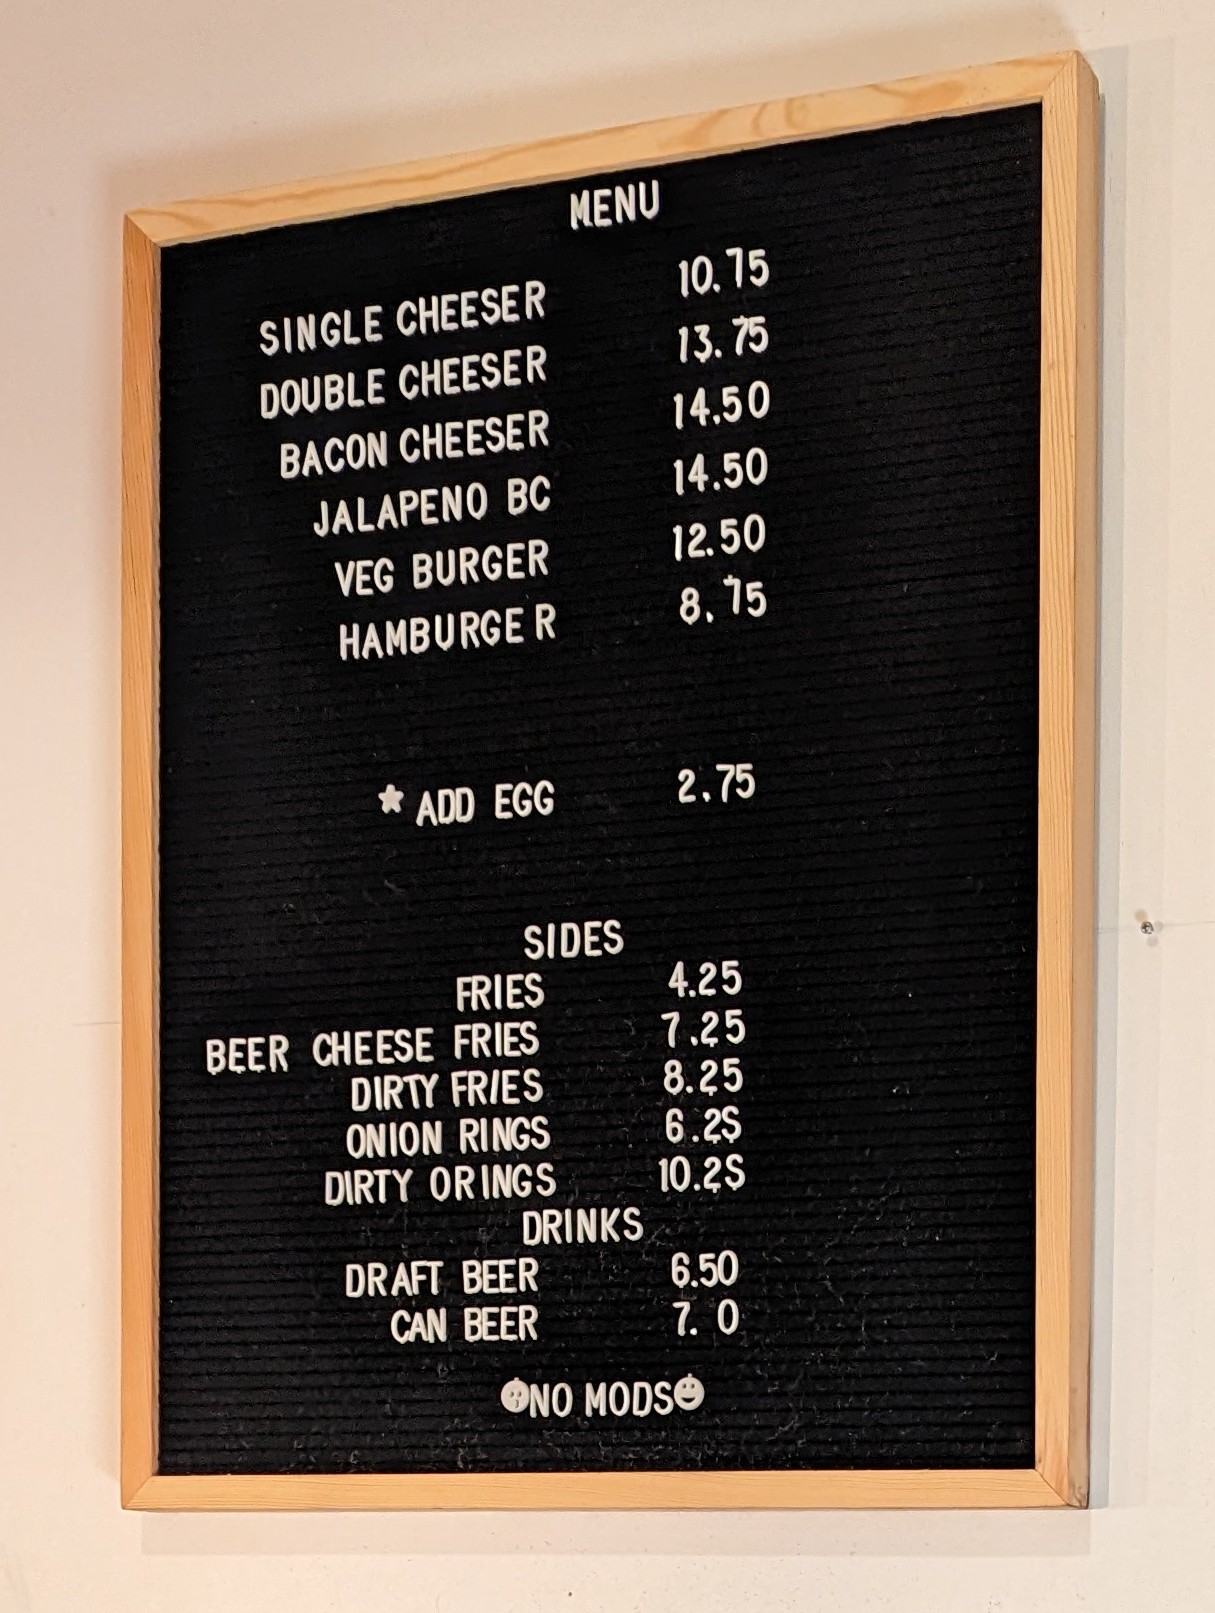 MENU
SINGLE CHEESER 10.75
DOUBLE CHEESER 13.75
BACON CHEESER 14.50
JALAPENO BC 14.50
VEG BURGER 12.50
HAMBURGER 8.75
★ ADD EGG 2.75
SIDES
FRIES 4.25
BEER CHEESE FRIES 7.25
DIRTY FRIES 8.25
ONION RINGS 6.2S
DIRTY ORINGS 10.2S
DRINKS
DRAFT BEER 6.50
CAN BEER 7. 0
NO MODS